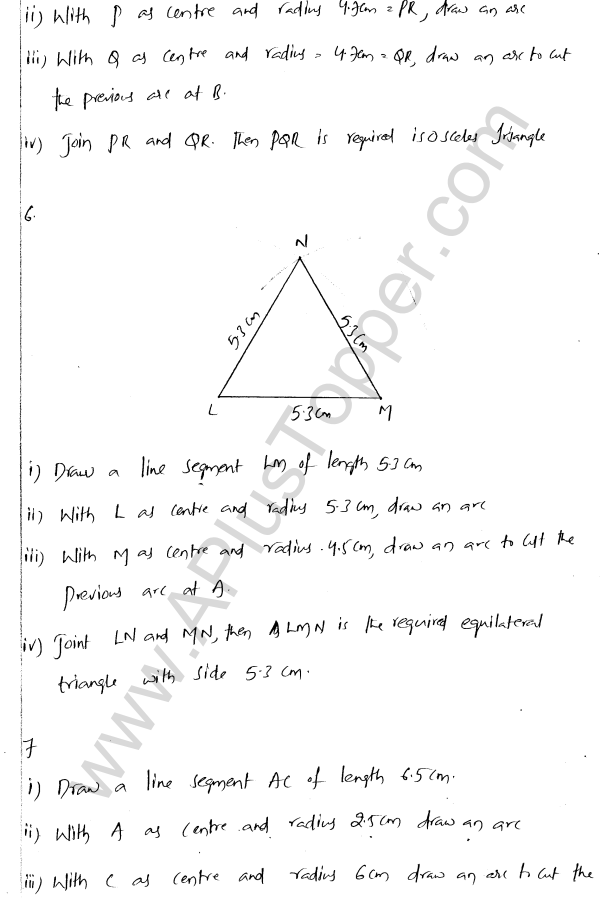 ii) With P as centre and radius 4.7cm = PR, draw an arc
iii) With Q as centre and radius = 4.7cm = QR, draw an arc to cut
the previous arc at B.
iv) Join PR and QR. Then PQR is required isosceles triangle
6.
N
5.3 cm
5.3 cm
L
5.3 cm
M
i) Draw a line segment LM of length 5.3 cm
ii) With L as centre and radius 5.3 cm, draw an arc
iii) With M as centre and radius .4.5cm, draw an arc to cut the
previous arc at A.
iv) Joint LN and MN, then Δ LMN is the required equilateral
triangle with side 5.3 cm.
7
i) Draw a line segment AC of length 6.5cm.
ii) With A as centre and radius 2.5cm draw an arc
iii) With C as centre and radius 6cm draw an arc to cut the
www.APlusTopper.com